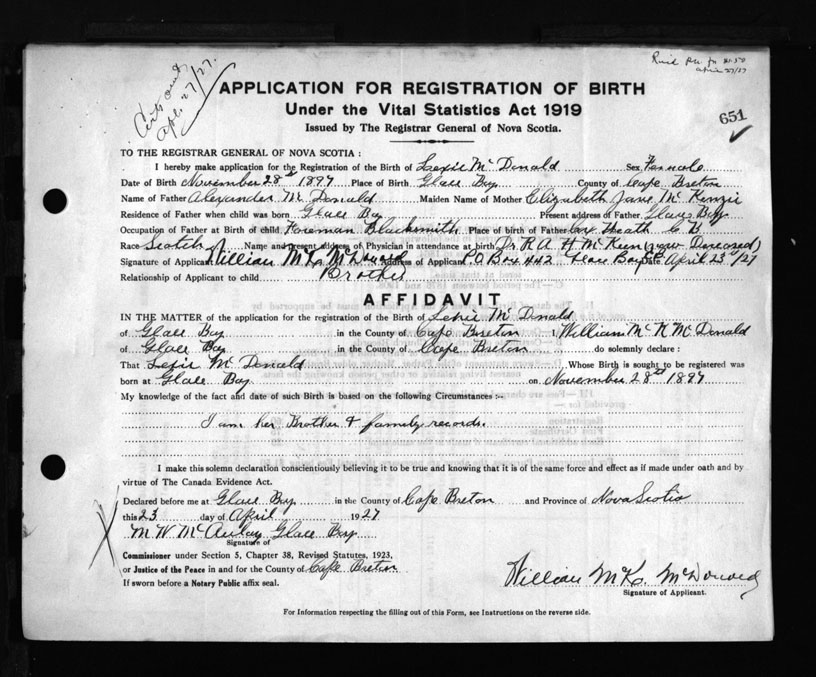 Certs sent
Apl. 27/27.
April 27/27
APPLICATION FOR REGISTRATION OF BIRTH
Under the Vital Statistics Act 1919
651
Issued by The Registrar General of Nova Scotia.
TO THE REGISTRAR GENERAL OF NOVA SCOTIA :
I hereby make application for the Registration of the Birth of Lexie McDonald Sex Female
Date of Birth November 28th 1897 Place of Birth Glace Bay County of Cape Breton
Name of Father Alexander McDonald Maiden Name of Mother Elizabeth Jane McKenzie
Residence of Father when child was born Glace Bay Present address of Father Glace Bay
Occupation of Father at Birth of child Foreman Blacksmith Place of birth of Father Cox Heath C B
Race Scotch Name and present address of Physician in attendance at birth Dr. R A H McKeen (now Deceased)
Signature of Applicant William McK McDonald Address of Applicant P.O. Box 442 Glace Bay Date April 23rd/27
Relationship of Applicant to child Brother
AFFIDAVIT
IN THE MATTER of the application for the registration of the Birth of Lexie McDonald
of Glace Bay in the County of Cape Breton I, William McK McDonald
of Glace Bay in the County of Cape Breton do solemnly declare :
That Lexie McDonald Whose Birth is sought to be registered was
born at Glace Bay on November 28th 1897
My knowledge of the fact and date of such Birth is based on the following Circumstances :-
I am her Brother & family records.
I make this solemn declaration conscientiously believing it to be true and knowing that it is of the same force and effect as if made under oath and by
virtue of The Canada Evidence Act.
Declared before me at Glace Bay in the County of Cape Breton and Province of Nova Scotia
this 23 day of April 1927
M W McAulay Glace Bay
Signature of
Commissioner under Section 5, Chapter 38, Revised Statutes, 1923,
or Justice of the Peace in and for the County of Cape Breton
If sworn before a Notary Public affix seal.
William McK. McDonald
Signature of Applicant.
For Information respecting the filling out of this Form, see Instructions on the reverse side.